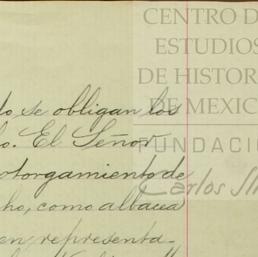 CENTRO D
ESTUDIOS
DE HISTOR
DE MEXIC
FUNDACIÓ
Carlos Sl
do se obligan los
o. El Señor
otorgamiento de
ho, como albacea
en representa-